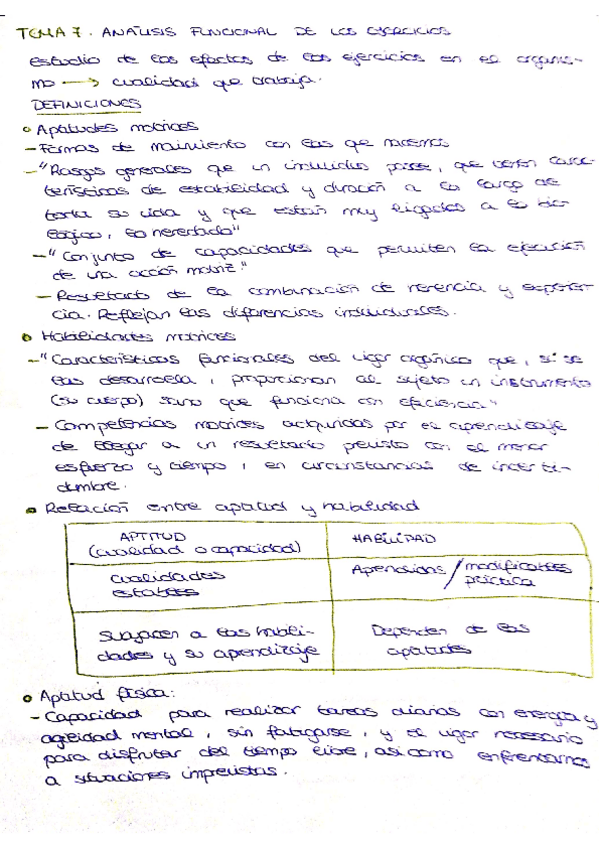 TEMA 7. ANÁLISIS FUNCIONAL DE LOS EJERCICIOS
estudio de los efectos de los ejercicios en el organis-
mo → cualidad que trabaja.
DEFINICIONES
Aptitudes motrices
- Formas de movimiento con las que nacemos
- "Rasgos generales que un individuo posee, que tienen carac-
terísticas de estabilidad y duración a lo largo de
toda su vida y que están muy ligados a lo bio-
lógico, lo heredado"
- "Conjunto de capacidades que permiten la ejecución
de una acción motriz."
- Resultado de la combinación de herencia y experien-
cia. Reflejan las diferencias individuales.
Habilidades motrices
- "Características funcionales del vigor orgánico que, si se
las desarrolla, proporcionan al sujeto un instrumento
(su cuerpo) sano que funciona con eficiencia"
- Competencias motrices adquiridas por el aprendizaje
de llegar a un resultado previsto con el menor
esfuerzo y tiempo, en circunstancias de incerti-
dumbre.
Relación entre aptitud y habilidad
APTITUD HABILIDAD
(cualidad o capacidad)
cualidades Aprendidas / modificables
estables práctica
Subyacen a las habili- Dependen de las
dades y su aprendizaje aptitudes
Aptitud física:
- Capacidad para realizar tareas diarias con energía y
agilidad mental, sin fatigarse, y el vigor necesario
para disfrutar del tiempo libre, así como enfrentarnos
a situaciones imprevistas.